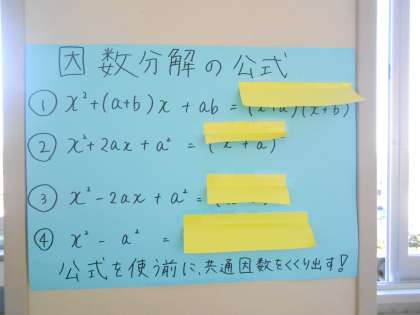 因数分解の公式
① x²+(a+b)x + ab = (x+a)(x+b)
② x²+2ax + a² = (x+a)²
③ x²-2ax + a² =
④ x² - a² =
公式を使う前に、共通因数をくくり出す!